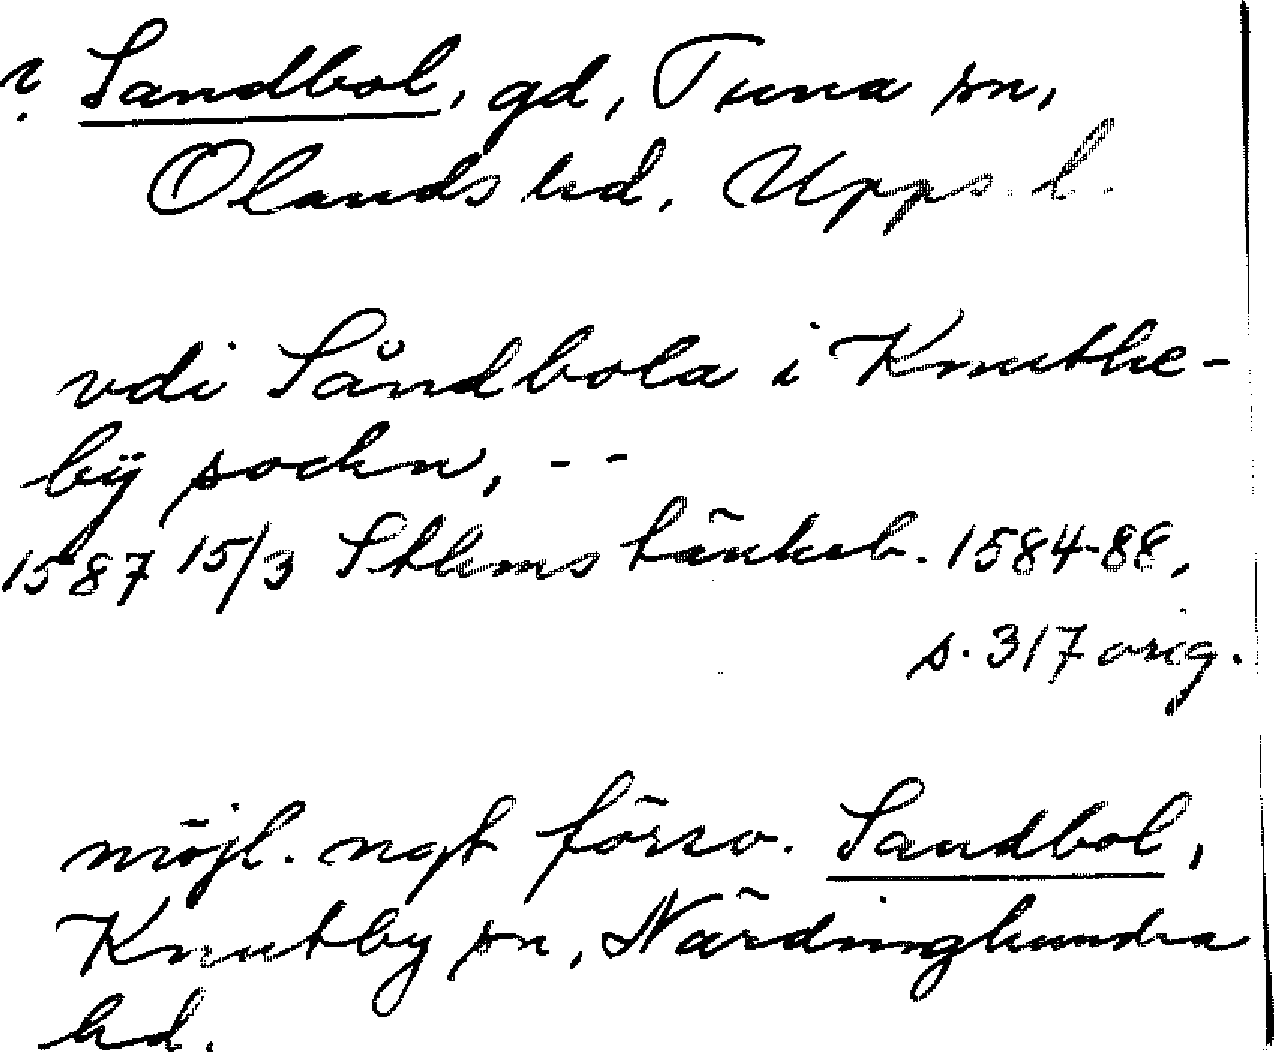 ? Sandbol, gd, Tuna sn,
Olands hd, Upps. l.
vdi Såndbola i Knuthe-
bÿ sockn, - -
1587 15/3 Sthlms tänkeb. 1584-88,
s. 317 orig.
möjl. ngt försv. Sandbol,
Knutby sn, Närdinghundra
hd.